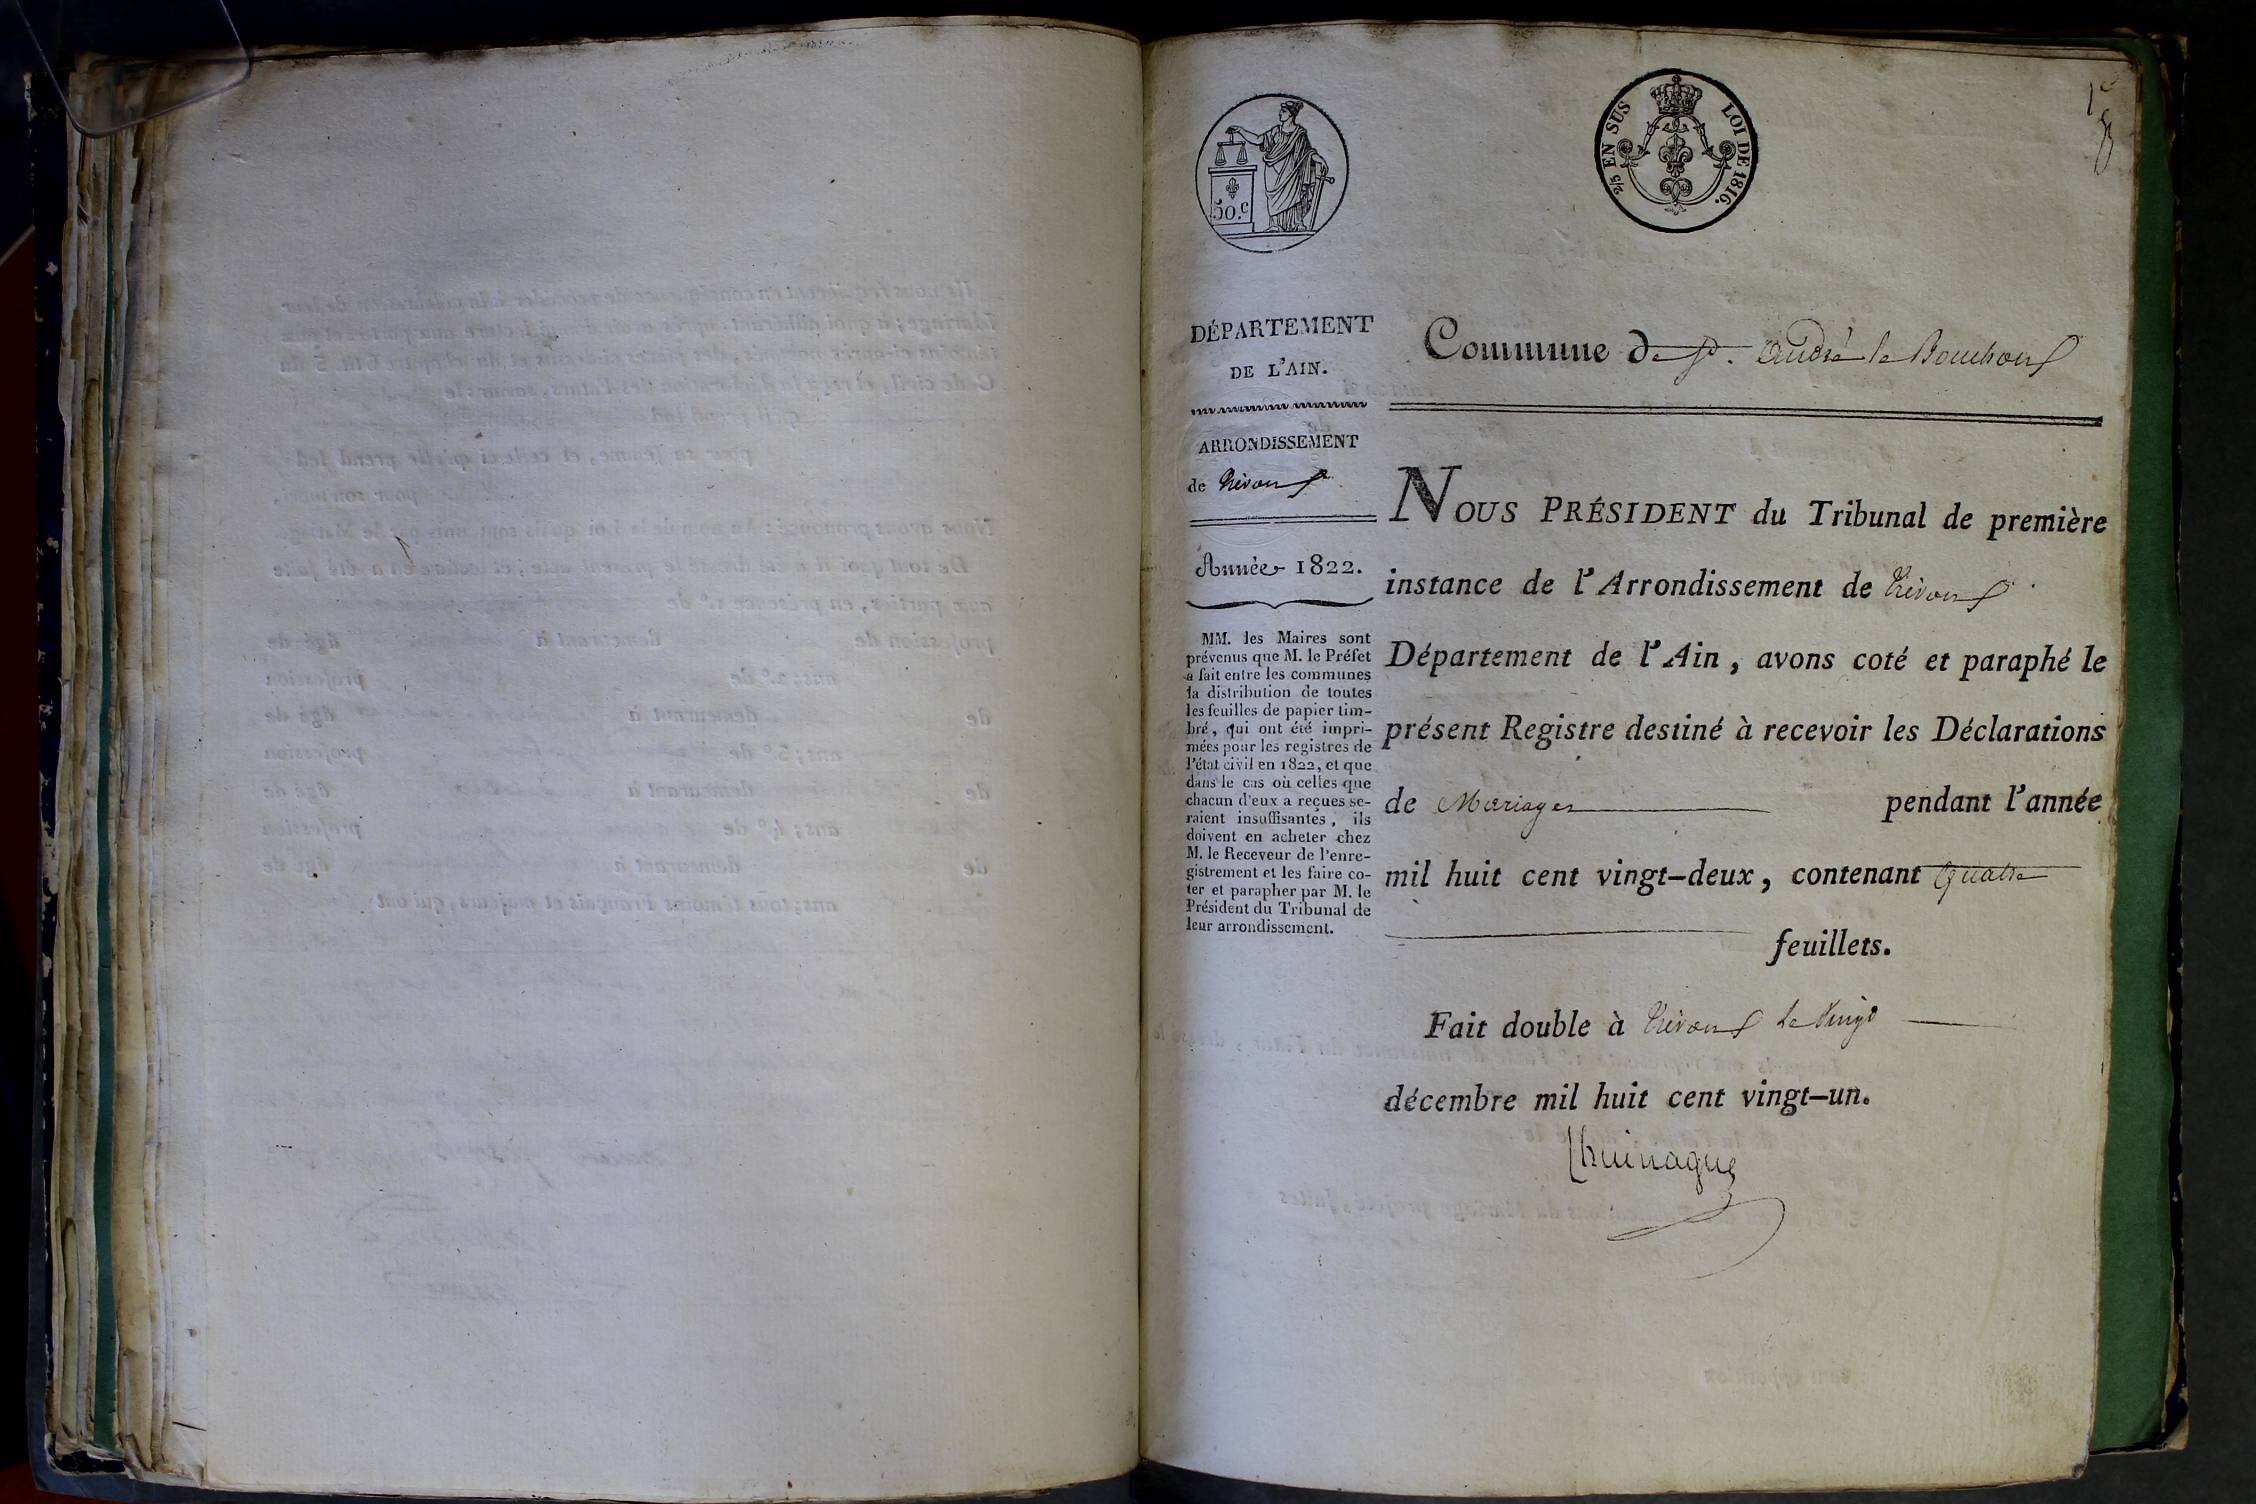 50.c
2/5 EN SUS LOI DE 1816.
DÉPARTEMENT
DE L'AIN.
ARRONDISSEMENT
de Trévoux
Année 1822.
MM. les Maires sont
prévenus que M. le Préfet
a fait entre les communes
la distribution de toutes
les feuilles de papier tim-
bré, qui ont été impri-
mées pour les registres de
l'état civil en 1822, et que
dans le cas où celles que
chacun d'eux a reçues se-
raient insuffisantes, ils
doivent en acheter chez
M. le Receveur de l'enre-
gistrement et les faire co-
ter et parapher par M. le
Président du Tribunal de
leur arrondissement.
Commune de St. André le Bouchoux
NOUS PRÉSIDENT du Tribunal de première
instance de l'Arrondissement de Trévoux
Département de l'Ain, avons coté et paraphé le
présent Registre destiné à recevoir les Déclarations
de Mariages pendant l'année
mil huit cent vingt-deux, contenant Quatre
feuillets.
Fait double à Trévoux le Vingt
décembre mil huit cent vingt-un.